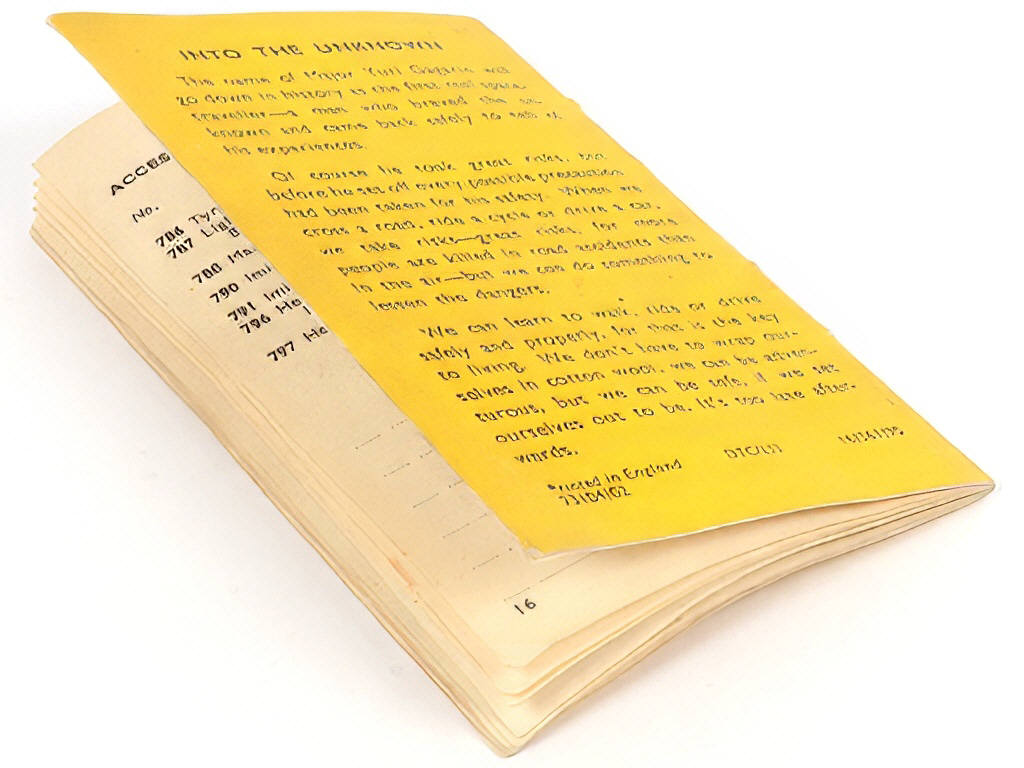 INTO THE UNKNOWN
The name of Major Yuri Gagarin will
go down in history as the first real space
traveller—a man who braved the un-
known and came back safely to tell of
his experiences.
Of course he took great risks, but
before he set off every possible precaution
had been taken for his safety. When we
cross a road, ride a cycle or drive a car,
we take risks—great risks, for more
people are killed in road accidents than
in the air—but we can do something to
lessen the dangers.
We can learn to walk, ride or drive
safely and properly, for that is the key
to living. We don't have to wrap our-
selves in cotton wool, we can be adven-
turous, but we can be safe, if we set
ourselves out to be. It's too late after-
wards.
Printed in England
ACCES
No.
786
787
788
790
791
796
797
16